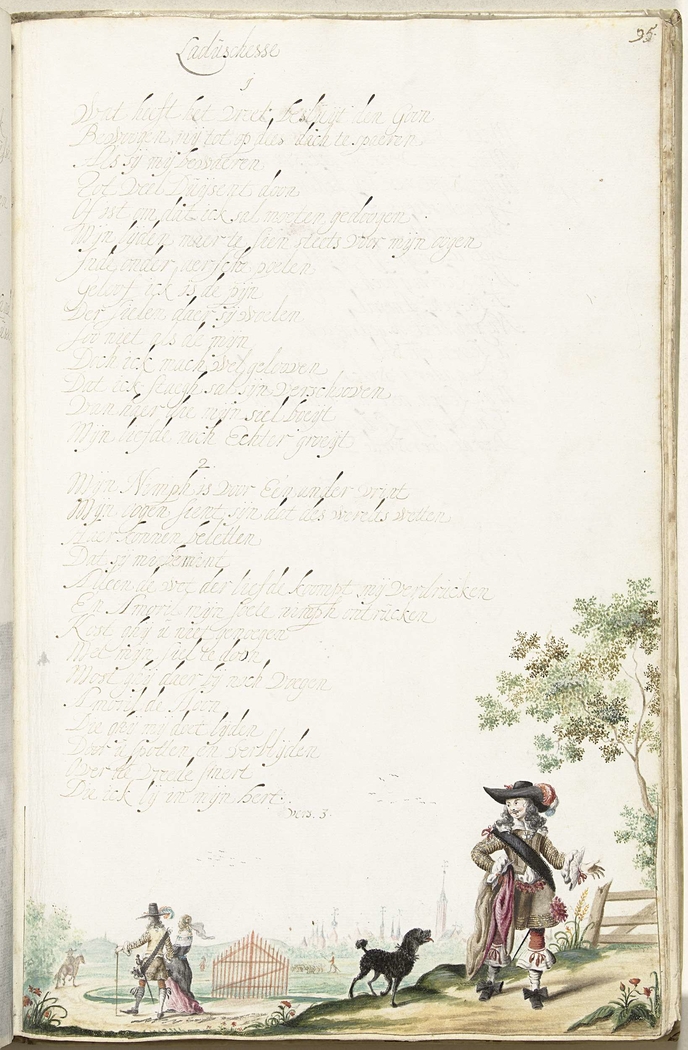 95
Laduchesse
1
Wat heeft het wreet besluyt den Goon
Bewogen, my tot op dees dach te spaeren
Als sy my bewaeren
Tot veel duysent doon
Of ist om dat ick sal moeten gedoogen
Mijn lyden meer te sien steets voor mijn oogen
Inde onder aertsche poelen
geloof ick is de pijn
Der sielen daer sy woelen
soo niet als de mijn
Doch ick mach wel gelooven
Dat ick staegh sal sijn verschooven
Van haer die mijn siel boeyt
Mijn liefde noch Echter groeyt
2
Mijn Nimph is voor Een ander
Mijn oogen sient, sijn dat des werelts wetten
Haer konnen beletten
Dat sy my bemint
Alleen de wet der liefde koompt my verdrucken
En Amaril mijn soete nimph ontrucken
Kost ghy u niet genoegen
Met mijn siel te doon
Most ghy daer by noch voegen
Amaril de
Die ghy my doet lyden
Door u spotten en verblyden
Over de wreede smert
Die ick ly in mijn hert.
vers. 3.